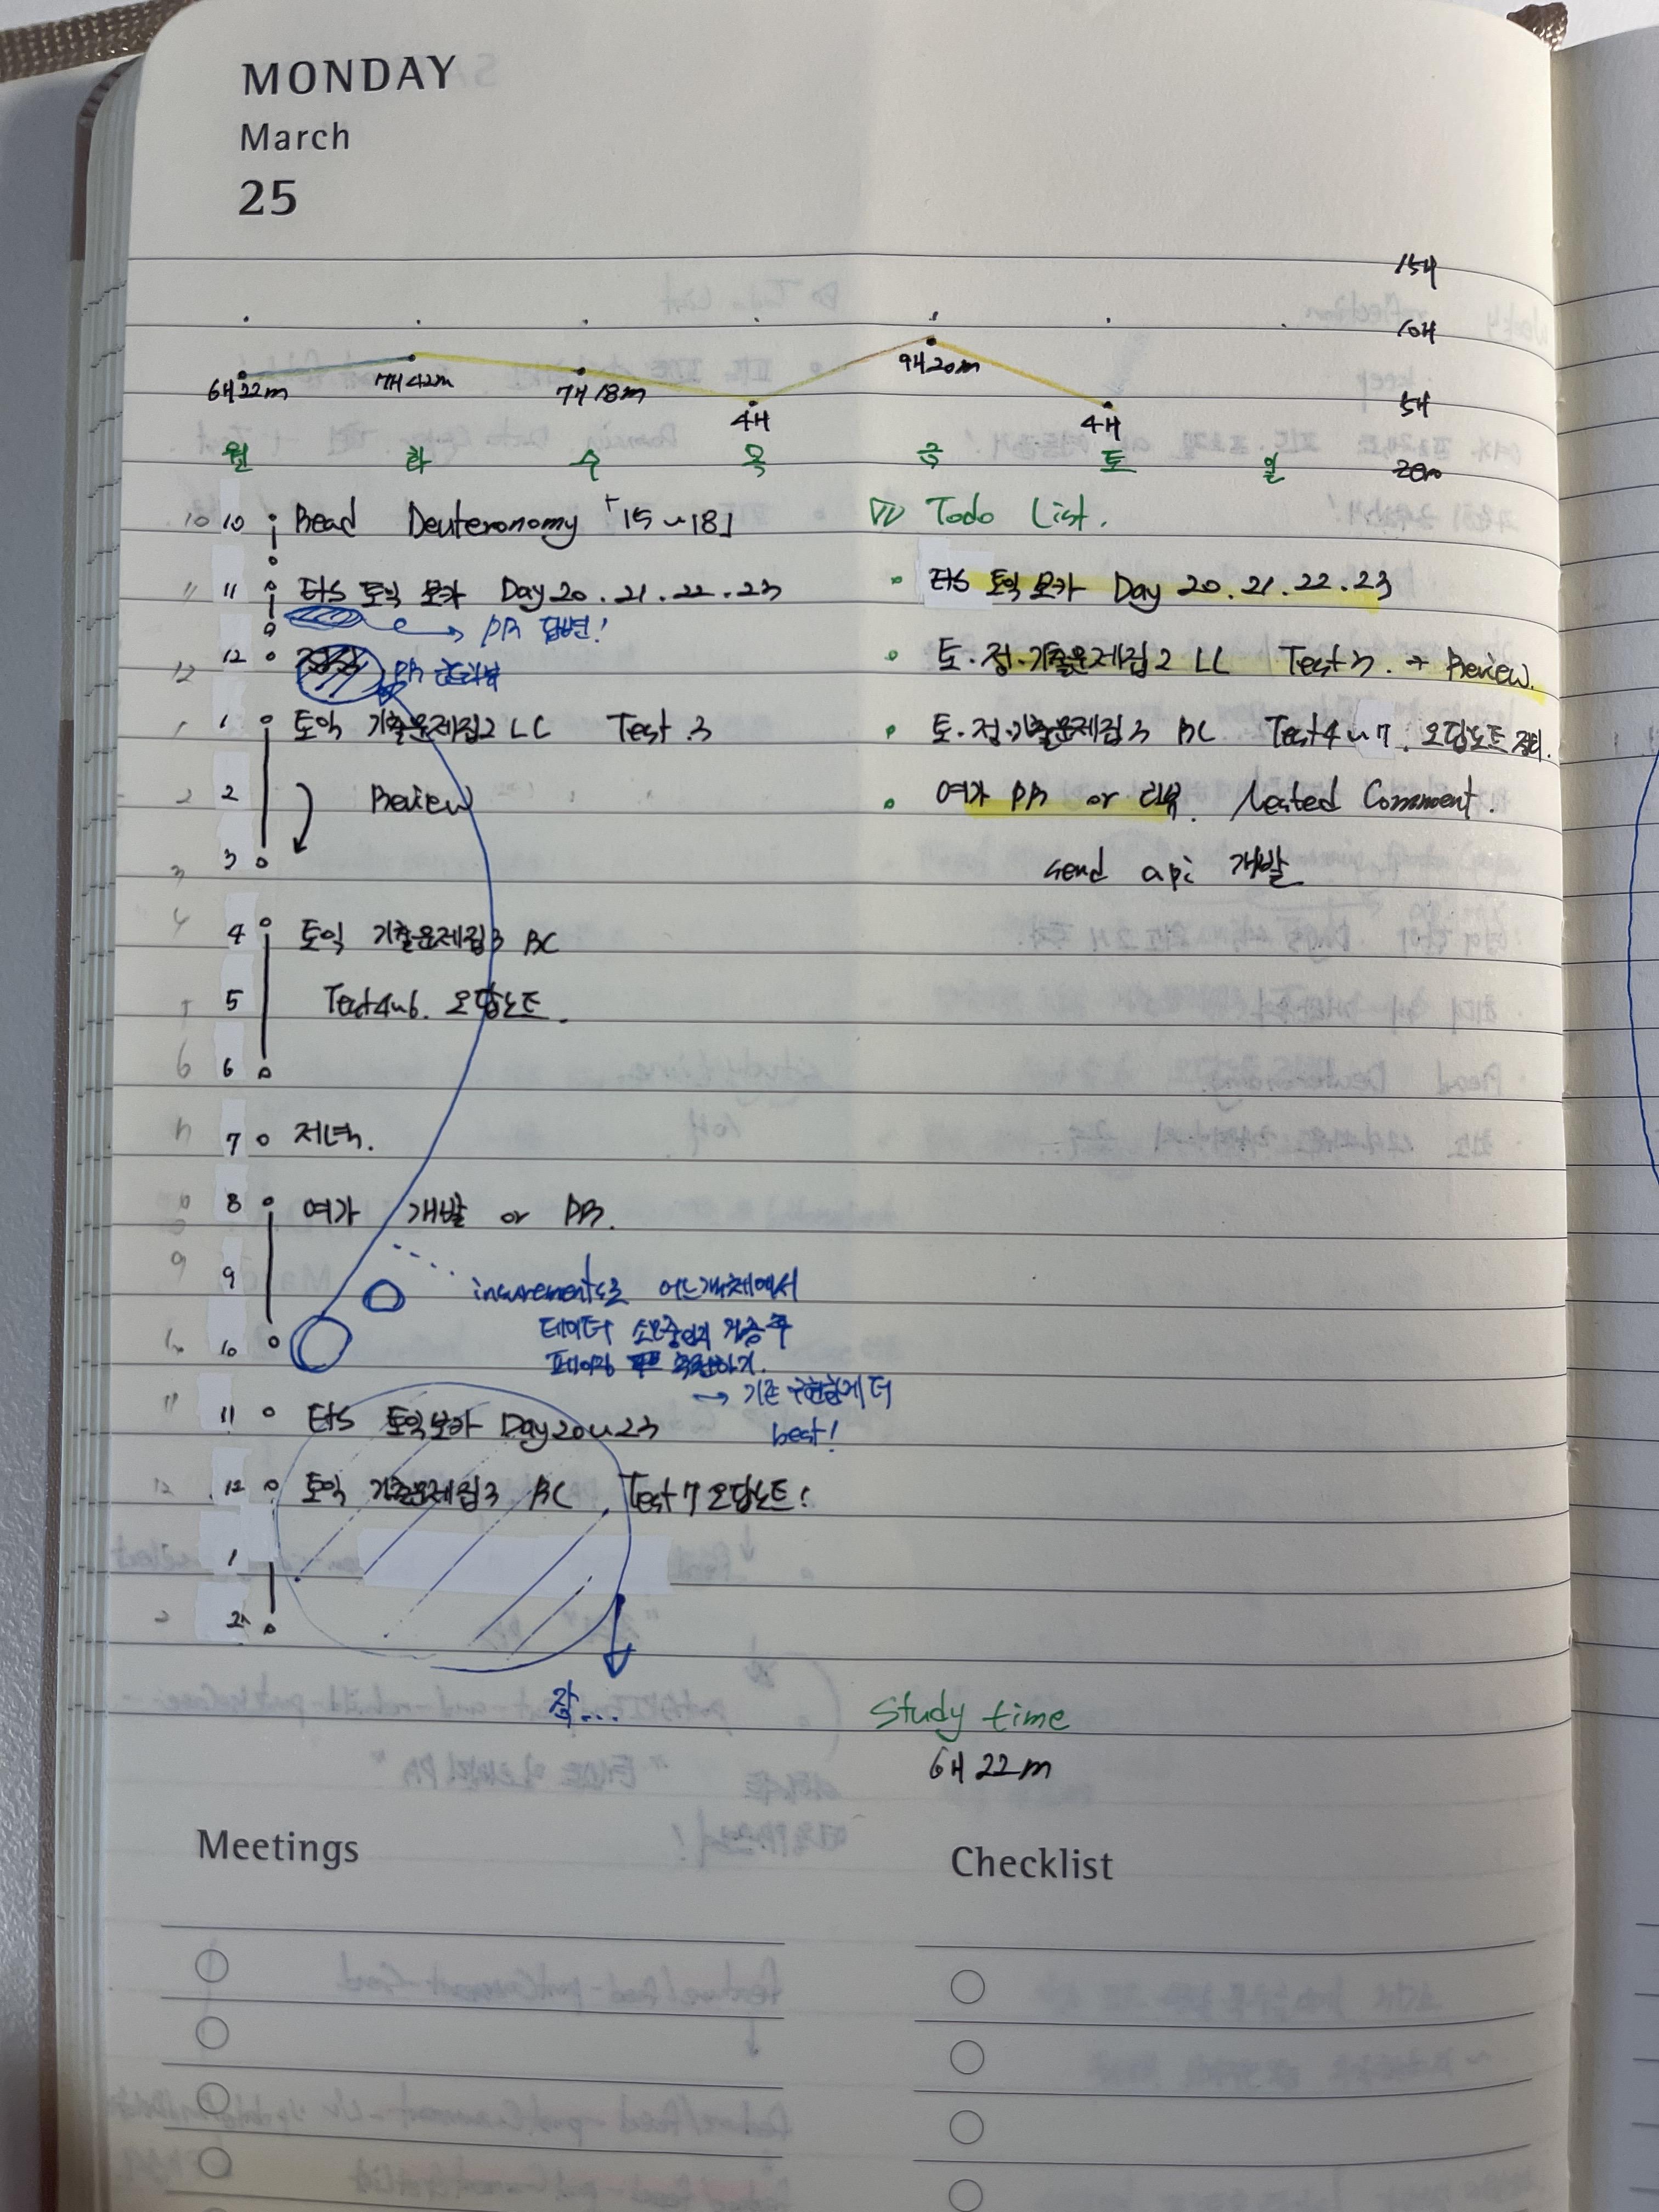 MONDAY
March
25
15H
10H
6H 22m 7H 42m 7H 18m 4H 9H 20m 4H 5H
월 화 수 목 금 토 일 zero
10 10 Read Deuteronomy 「15~18」
11 11 ETS 토익 보카 Day 20. 21. 22. 23
→ PR 답변!
12 12 PR
1 토익 기출문제집2 LC Test 3
2 2 Review
3 3
4 4 토익 기출문제집3 RC
5 5 Test4~6. 오답노트.
6 6
7 7 저녁.
8 8 여가 개발 or PR.
9 9
increment로 어느객체에서
데이터 소모중인지 검증 후
10 10
페이징 하기.
→ 기존 구현한게 더
best!
11 11 ETS 토익보카 Day20~23
12 12 토익 기출문제집3 RC Test 7 오답노트!
1
2 2
잠...
▽ Todo List.
• ETS 토익 보카 Day 20. 21. 22. 23
• 토.정.기출문제집2 LC Test 3. → Review.
• 토.정.기출문제집3 RC Test4~7. 오답노트 정리.
• 여가 PR or 리뷰. Nested Comment.
send api 개발
Study time
6H 22m
Meetings
Checklist